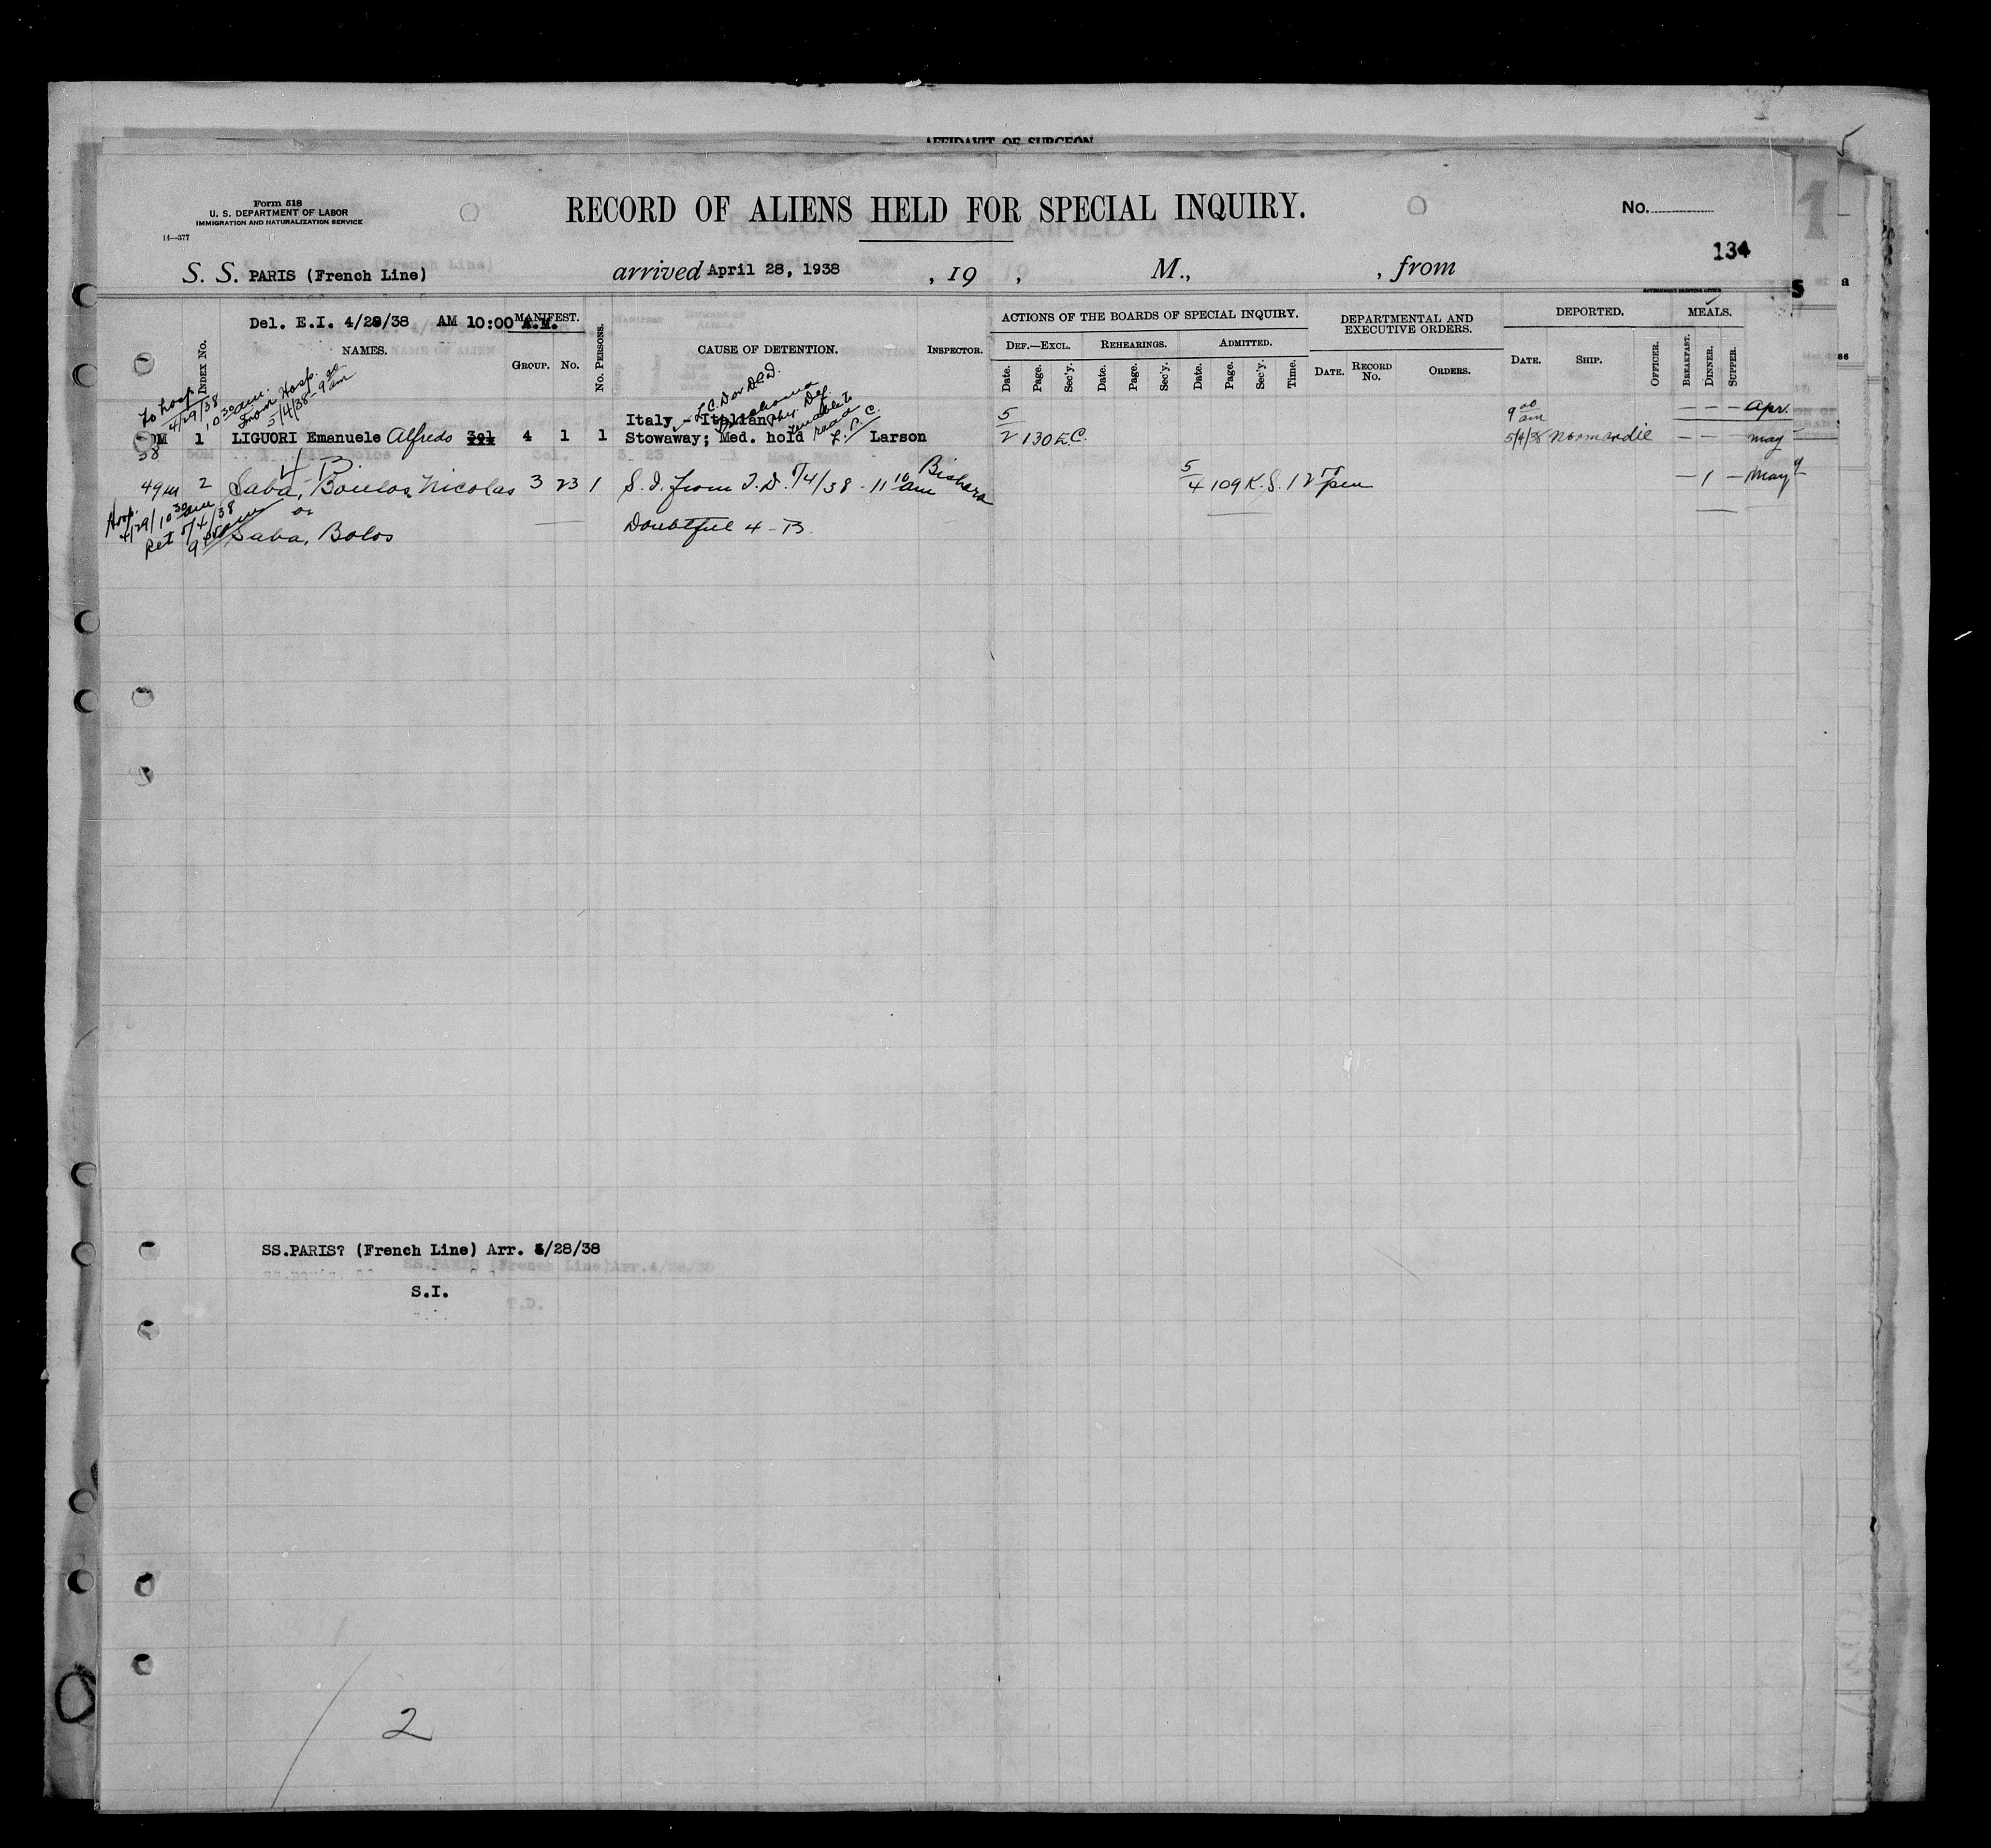 AFFIDAVIT OF SURGEON
5
Form 518
U. S. DEPARTMENT OF LABOR
IMMIGRATION AND NATURALIZATION SERVICE
14—377
RECORD OF ALIENS HELD FOR SPECIAL INQUIRY.
No.
1
134
S. S. PARIS (French Line) arrived April 28, 1938 , 19 , M., , from
Del. E.I. 4/28/38 AM 10:00 A.M.
INDEX No.
NAMES.
MANIFEST.
GROUP. No.
No. PERSONS.
CAUSE OF DETENTION.
INSPECTOR.
ACTIONS OF THE BOARDS OF SPECIAL INQUIRY.
DEF.—EXCL. REHEARINGS. ADMITTED.
Date. Page. Sec'y. Date. Page. Sec'y. Date. Page. Sec'y. Time.
DEPARTMENTAL AND EXECUTIVE ORDERS.
DATE. RECORD No. ORDERS.
DEPORTED.
DATE. SHIP. OFFICER.
MEALS.
BREAKFAST. DINNER. SUPPER.
To hosp
4/29/38
10 30 am.
From Hosp.
5/4/38 - 9 00 am
L.C.D or D.C.D.
Trachoma
Phy. Def.
unable to
read
L.P.C.
Italy - Italian
5/2 130 E.C.
9 00 am
— — — Apr.
38 1 LIGUORI Emanuele Alfredo 4 1 1 Stowaway; Med. hold Larson
5/4/38 Normandie — — May
4 B
49m 2 Saba, Boulos Nicolas 3 23 1 S.I. from T.D. 5/4/38 - 11 10 am Bishara
5/4 109 K.S. 1 25 pm — 1 — May 4
Hosp.
4/29/10 30 am
Ret 5/4/38
9 am
or
Saba, Bolos
Doubtful 4 - B.
SS.PARIS? (French Line) Arr. 4/28/38
S.I.
T.D.
/ 2